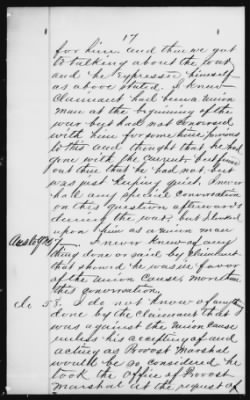 17
for him. and then we got
to talking about the war
and he expressed himself
as above stated. I knew
Claimant had been a Union
man at the beginning of the
war but had not conversed
with him for some time previous
to this and thought that he had
gone with the current but found
out then that he had not but
was just keeping quiet. I never
had any special conversation
on this question afterwards
during the war, but I looked
upon him as a union man
I never knew of any
thing done or said by claimant
that showed he was in favor
of the Union Cause more than
the conversation.
53. I do not know of anything
done by the Claimant that
was against the Union Cause
unless his accepting of and
acting as Provost Marshal
would be so considered he
took the Office of Provost
Marshal at the request of